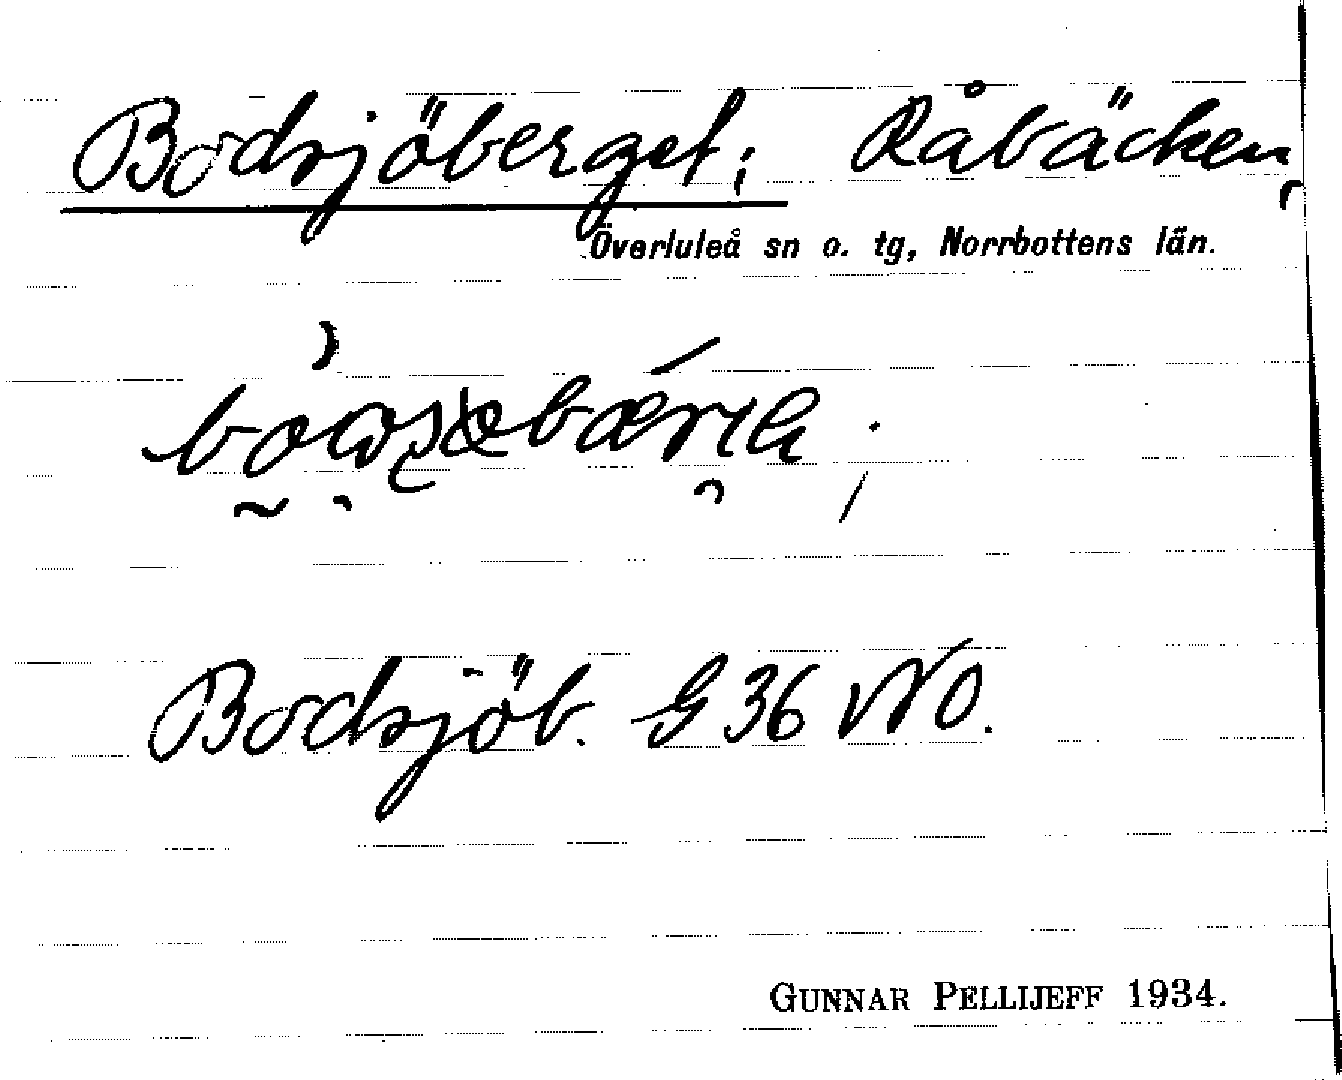 Bodsjöberget; Råbäcken,
Överluleå sn o. tg, Norrbottens län.
Bodsjöb. G 36 NO.
GUNNAR PELLIJEFF 1934.